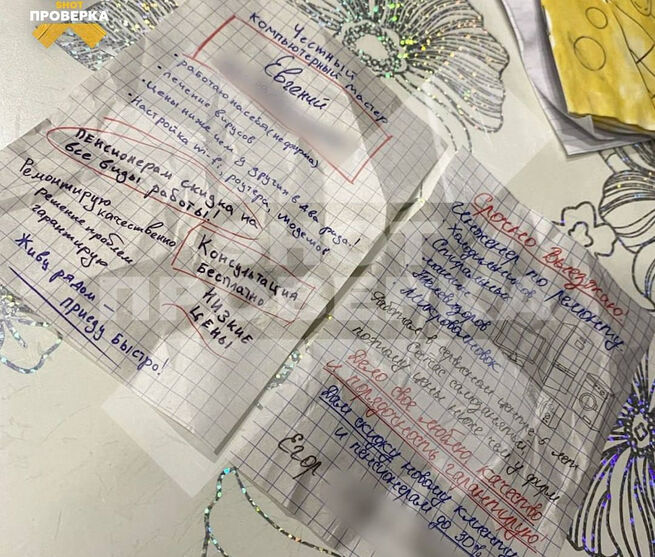 SHOT
ПРОВЕРКА
Честный
компьютерный мастер
Евгений
- работаю на себя (не фирма)
- лечение вирусов
- Цены ниже чем у других в два раза!
- Настройка wi-fi, роутера, модемов
ПЕНСИОНЕРАМ СКИДКА НА
ВСЕ ВИДЫ РАБОТЫ!
Ремонтирую качественно
решение проблем
гарантирую
Консультация
Бесплатно
НИЗКИЕ
ЦЕНЫ
Живу рядом -
приеду быстро!
Срочно Выезжаю
Инженер по ремонту
Холодильников
Стиральных
машин
Телевизоров
Микроволновок
Работал в сервисном центре 6 лет
Сейчас самозанятый
потому цены ниже чем у фирм
Дело свое люблю, качество
и порядочность гарантирую
Дам скидку новому клиенту
и пенсионерам до 30%
Егор
ПРОВЕРКА